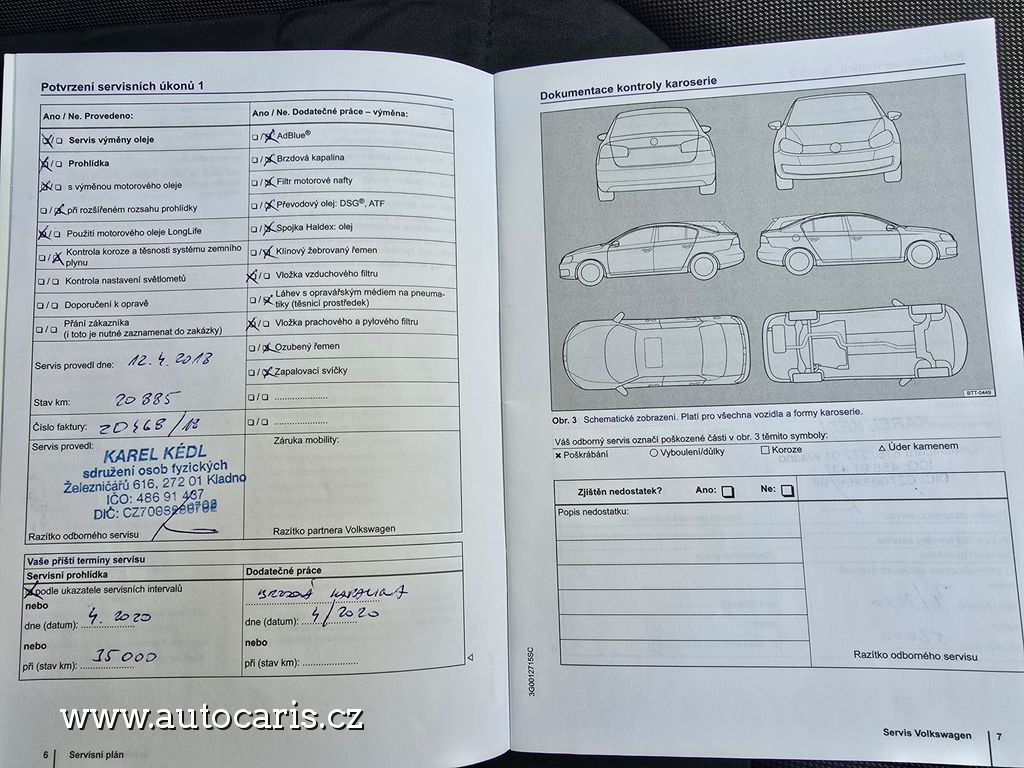 Potvrzení servisních úkonů 1
Ano / Ne. Provedeno:
Servis výměny oleje
Prohlídka
s výměnou motorového oleje
při rozšířeném rozsahu prohlídky
Použití motorového oleje LongLife
Kontrola koroze a těsnosti systému zemního
plynu
Kontrola nastavení světlometů
Doporučení k opravě
Přání zákazníka
(i toto je nutné zaznamenat do zakázky)
Servis provedl dne: 12.4.2018
Stav km: 20 885
Číslo faktury: ZD468/18
Servis provedl:
KAREL KÉDL
sdružení osob fyzických
Železničářů 616, 272 01 Kladno
IČO: 486 91 437
DIČ:
Razítko odborného servisu
Ano / Ne. Dodatečné práce – výměna:
AdBlue®
Brzdová kapalina
Filtr motorové nafty
Převodový olej: DSG®, ATF
Spojka Haldex: olej
Klínový žebrovaný řemen
Vložka vzduchového filtru
Láhev s opravářským médiem na pneuma-
tiky (těsnicí prostředek)
Vložka prachového a pylového filtru
Ozubený řemen
Zapalovací svíčky
Záruka mobility:
Razítko partnera Volkswagen
Vaše příští termíny servisu
Servisní prohlídka
podle ukazatele servisních intervalů
nebo
dne (datum): 4. 2020
nebo
při (stav km): 35 000
Dodatečné práce
BRZDOVÁ KAPALINA
dne (datum): 4/2020
nebo
při (stav km):
www.autocaris.cz
6 Servisní plán
Dokumentace kontroly karoserie
BTT-0449
Obr. 3 Schematické zobrazení. Platí pro všechna vozidla a formy karoserie.
Váš odborný servis označí poškozené části v obr. 3 těmito symboly:
Poškrábání Vyboulení/důlky Koroze Úder kamenem
Zjištěn nedostatek? Ano: Ne:
Popis nedostatku:
Razítko odborného servisu
3G0012715SC
Servis Volkswagen 7